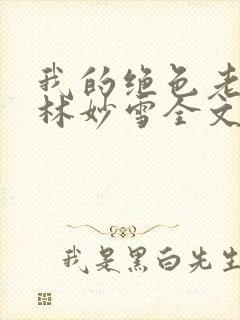 我的绝色老
林妙雪全文
我是黑白先生